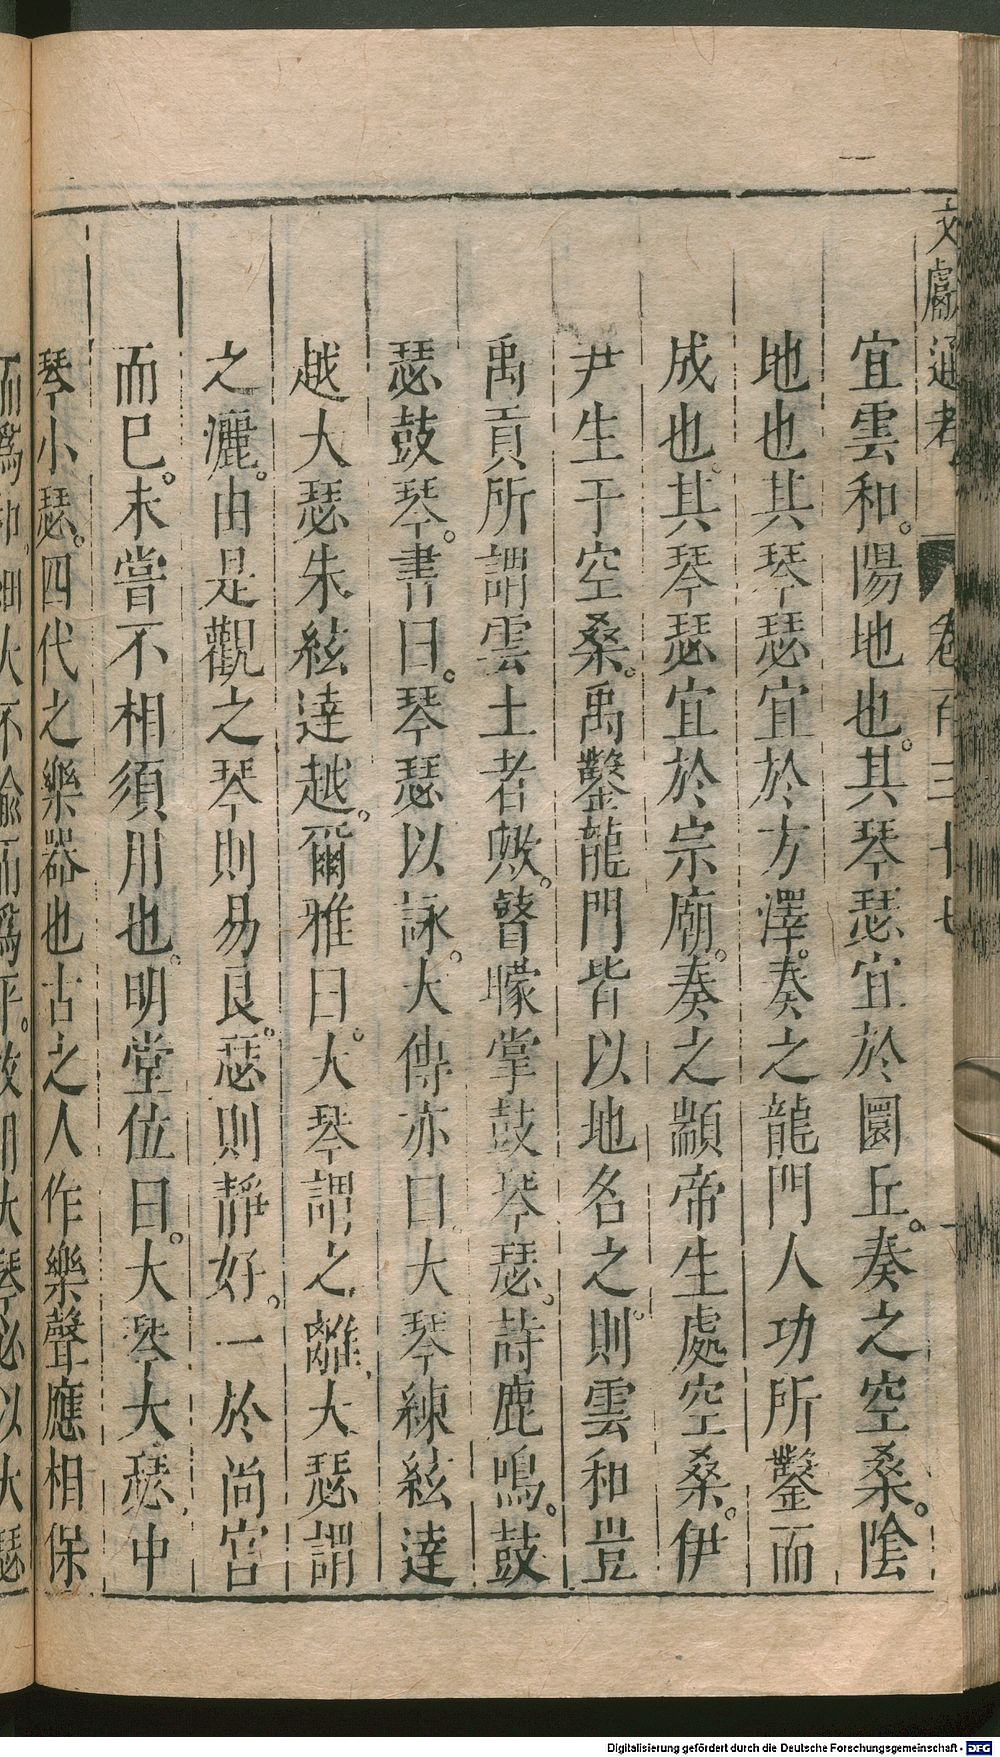 文獻通考 卷百三十七
宜雲和。陽地也。其琴瑟宜於圜丘。奏之空桑。陰
地也其琴瑟宜於方澤。奏之龍門人功所鑿而
成也。其琴瑟宜於宗廟。奏之顓帝生處空桑。伊
尹生于空桑。禹鑿龍門皆以地名之。則雲和豈
禹貢所謂雲土者歟。瞽矇掌鼓琴瑟。詩鹿鳴。鼓
瑟鼓琴。書曰。琴瑟以詠。大傳亦曰。大琴練絃達
越大瑟朱絃達越。爾雅曰。大琴謂之離。大瑟謂
之灑。由是觀之琴則易良。瑟則靜好。一於尚宮
而已。未嘗不相須用也。明堂位曰。大琴大瑟。中
琴小瑟。四代之樂器也古之人作樂聲應相保
而爲和。細大不踰而爲平。故用大琴必以大瑟
Digitalisierung gefördert durch die Deutsche Forschungsgemeinschaft - DFG